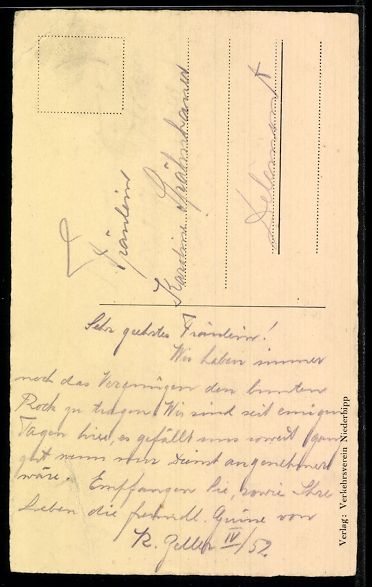 Fräulein
Delémont
Sehr geehrtes Fräulein!
Wir haben immer
noch das Vergnügen den bunten
Rock zu tragen. Wir sind seit einigen
Tagen hier, es gefällt uns soweit ganz
gut wenn nur Dienst angenehmer
wäre. Empfangen Sie, sowie Ihre
Lieben die freundl. Grüsse von
R. Zeller IV/52.
Verlag: Verkehrsverein Niederbipp